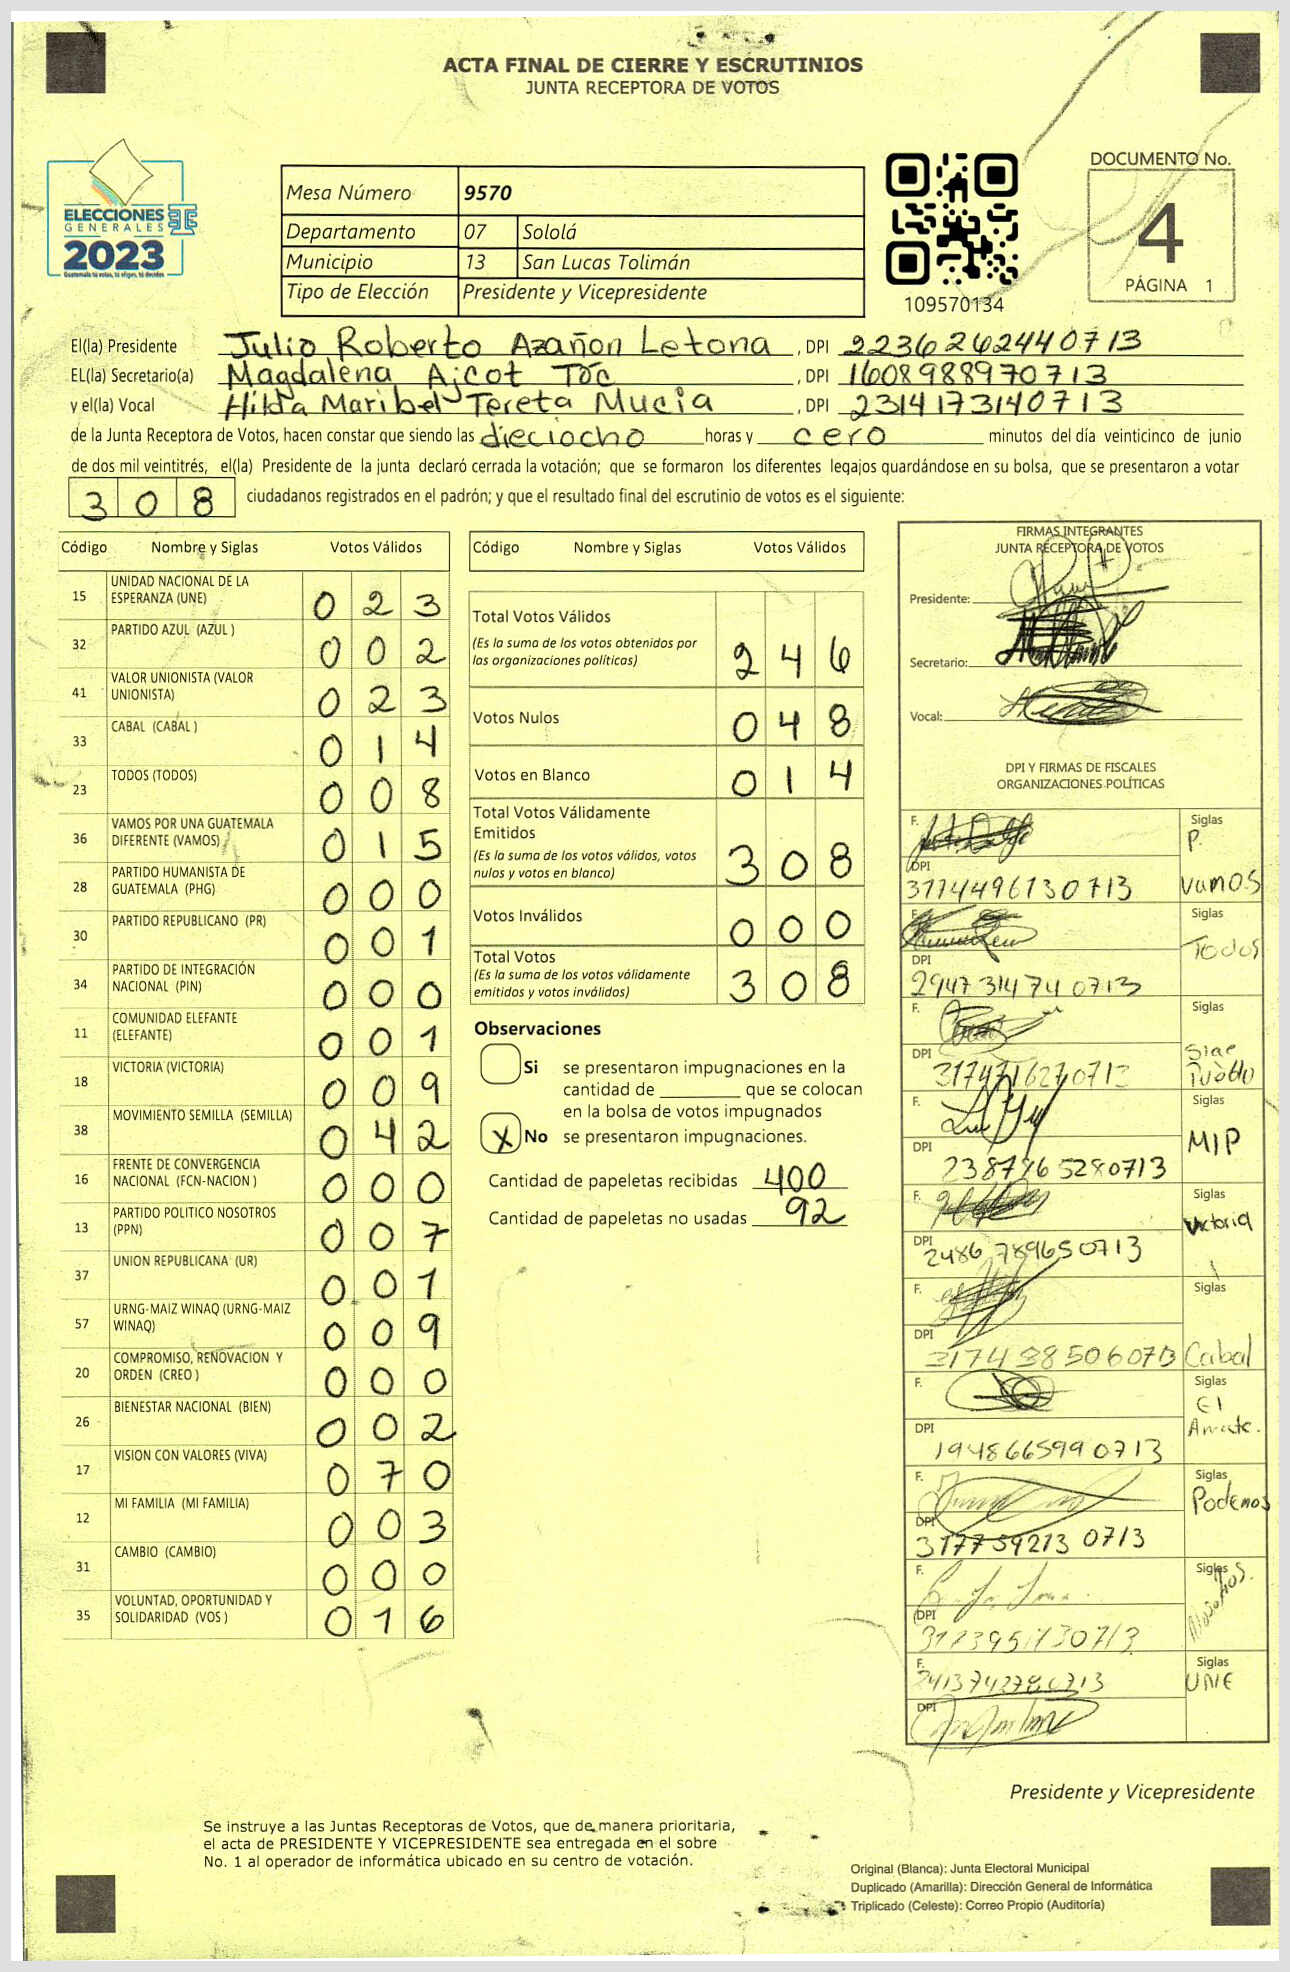 ACTA FINAL DE CIERRE Y ESCRUTINIOS
JUNTA RECEPTORA DE VOTOS
ELECCIONES
GENERALES
2023
Guatemala tú votas, tú eliges, tú decides
Mesa Número 9570
Departamento 07 Sololá
Municipio 13 San Lucas Tolimán
Tipo de Elección Presidente y Vicepresidente
109570134
DOCUMENTO No.
4
PÁGINA 1
El(la) Presidente Julio Roberto Azañon Letona , DPI 2236262440713
EL(la) Secretario(a) Magdalena Ajcot Toc , DPI 1608988970713
y el(la) Vocal Hilda Maribel Tereta Mucia , DPI 2314173140713
de la Junta Receptora de Votos, hacen constar que siendo las dieciocho horas y cero minutos del día veinticinco de junio
de dos mil veintitrés, el(la) Presidente de la junta declaró cerrada la votación; que se formaron los diferentes legajos quardándose en su bolsa, que se presentaron a votar
308 ciudadanos registrados en el padrón; y que el resultado final del escrutinio de votos es el siguiente:
Código Nombre y Siglas Votos Válidos
15 UNIDAD NACIONAL DE LA ESPERANZA (UNE) 023
32 PARTIDO AZUL (AZUL ) 002
41 VALOR UNIONISTA (VALOR UNIONISTA) 023
33 CABAL (CABAL ) 014
23 TODOS (TODOS) 008
36 VAMOS POR UNA GUATEMALA DIFERENTE (VAMOS) 015
28 PARTIDO HUMANISTA DE GUATEMALA (PHG) 000
30 PARTIDO REPUBLICANO (PR) 001
34 PARTIDO DE INTEGRACIÓN NACIONAL (PIN) 000
11 COMUNIDAD ELEFANTE (ELEFANTE) 001
18 VICTORIA (VICTORIA) 009
38 MOVIMIENTO SEMILLA (SEMILLA) 042
16 FRENTE DE CONVERGENCIA NACIONAL (FCN-NACION ) 000
13 PARTIDO POLITICO NOSOTROS (PPN) 007
37 UNION REPUBLICANA (UR) 001
57 URNG-MAIZ WINAQ (URNG-MAIZ WINAQ) 009
20 COMPROMISO, RENOVACION Y ORDEN (CREO ) 000
26 BIENESTAR NACIONAL (BIEN) 002
17 VISION CON VALORES (VIVA) 070
12 MI FAMILIA (MI FAMILIA) 003
31 CAMBIO (CAMBIO) 000
35 VOLUNTAD, OPORTUNIDAD Y SOLIDARIDAD (VOS ) 016
Código Nombre y Siglas Votos Válidos
Total Votos Válidos
(Es la suma de los votos obtenidos por
las organizaciones políticas) 246
Votos Nulos 048
Votos en Blanco 014
Total Votos Válidamente
Emitidos
(Es la suma de los votos válidos, votos
nulos y votos en blanco) 308
Votos Inválidos 000
Total Votos
(Es la suma de los votos válidamente
emitidos y votos inválidos) 308
Observaciones
Si se presentaron impugnaciones en la
cantidad de que se colocan
en la bolsa de votos impugnados
X No se presentaron impugnaciones.
Cantidad de papeletas recibidas 400
Cantidad de papeletas no usadas 92
FIRMAS INTEGRANTES
JUNTA RECEPTORA DE VOTOS
Presidente:
Secretario:
Vocal:
DPI Y FIRMAS DE FISCALES
ORGANIZACIONES POLÍTICAS
F. Siglas P. Vamos
DPI 3174496130713
F. Siglas Todos
DPI 2947314740713
F. Siglas
DPI 3174716270713
F. Siglas MIP
DPI 2387965280713
F. Siglas Victoria
DPI 2486789650713
F. Siglas Cabal
DPI
F. Siglas El
DPI 1948665990713
F. Siglas Podemos
DPI 3177592130713
F. Siglas
DPI
F. Siglas UNE
DPI
Presidente y Vicepresidente
Se instruye a las Juntas Receptoras de Votos, que de manera prioritaria,
el acta de PRESIDENTE Y VICEPRESIDENTE sea entregada en el sobre
No. 1 al operador de informática ubicado en su centro de votación.
Original (Blanca): Junta Electoral Municipal
Duplicado (Amarilla): Dirección General de Informática
Triplicado (Celeste): Correo Propio (Auditoría)